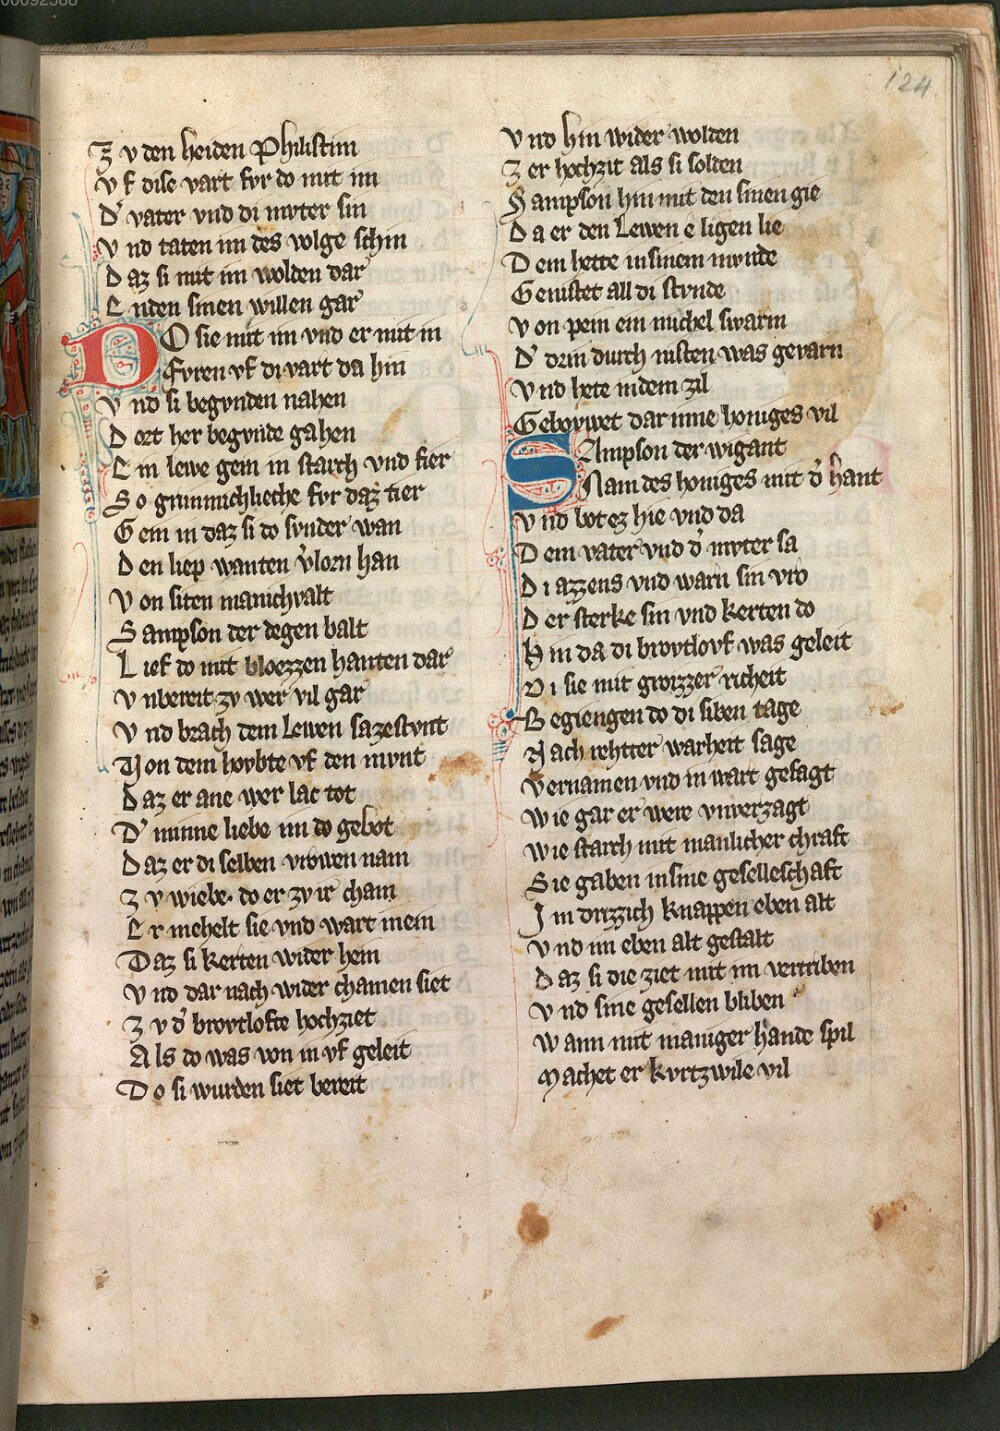 124.
Z v den heiden Philistim
V f dise vart fvr do mit im
D' vater vnd di mvter sin
V nd taten im des volge schin
D az si mit im wolden dar
E nden sinen willen gar
DO sie mit im vnd er mit in
Fvren vf di vart da hin
V nd si begvnden nahen
D ort her begvnde gahen
E in lewe gein in starch vnd fier
S o grimmichlieche fvr daz tier
G ein in daz si do svnder wan
D en liep wanten v'lorn han
V on siten manichvalt
S ampson der degen balt
L ief do mit bloezzen hanten dar
V nbereit zv wer vil gar
V nd brach dem Lewen sazestvnt
V on dem hovbte vf den mvnt
D az er ane wer lac tot
D' minne liebe im do gebot
D az er di selben vrowen nam
Z v wiebe· do er zv ir cham
E r mehelt sie vnd wart inein
D az si kerten wider hein
V nd dar nach wider chamen siet
Z v d' brovtlofte hochziet
A ls do was von in vf geleit
D o si wurden siet bereit
V nd hin wider wolden
Z er hochzit als si solden
S ampson hin mit den sinen gie
D a er den Lewen e ligen lie
D em hette in sinem mvnde
G enistet all di stvnde
V on pein ein michel swarm
D' drin durch nisten was gevarn
V nd hete in dem zil
G ebovwet dar inne honiges vil
SAmpson der wigant
Nam des honiges mit d' hant
V nd bot ez hie vnd da
D em vater vnd d' mvter sa
D i azzens vnd warn sin vro
D er sterke sin vnd kerten do
H in da di brovtlovf was geleit
D i sie mit grozzer richeit
B egiengen do di siben tage
N ach rehtter warheit sage
V ernamen vnd in wart gesagt
W ie gar er were vnverzagt
W ie starch mit manlicher chraft
S ie gaben in sine geselleschaft
I m drizzich knappen eben alt
V nd im eben alt gestalt
D az si die ziet mit im vertriben
V nd sine gesellen bliben
W ann mit maniger hande spil
M achet er kvrtzwile vil